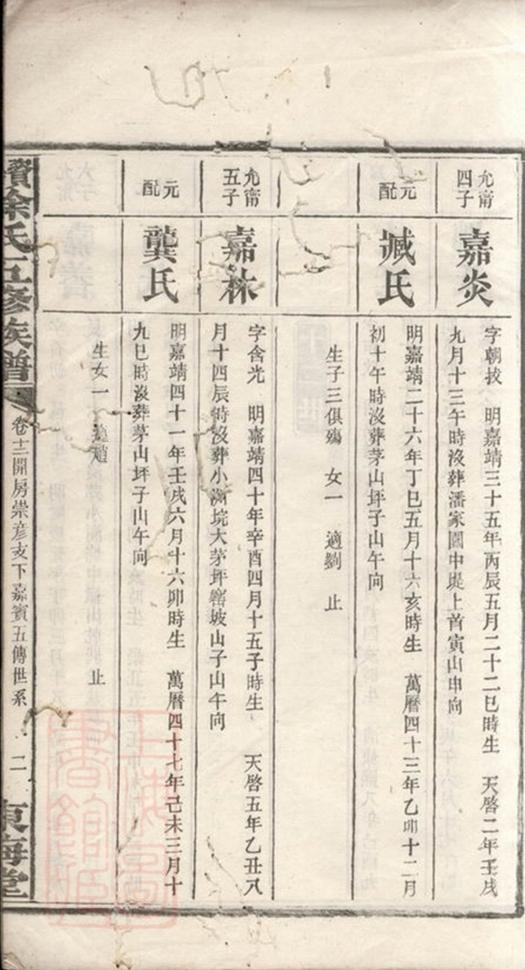 允甯
四子
嘉炎
字朝拔　明嘉靖三十五年丙辰五月二十二巳時生　天啓二年壬戌
九月十三午時沒葬潘家園中堤上首寅山申向
元
配
臧氏
明嘉靖二十六年丁巳五月十六亥時生　萬曆四十三年乙卯十二月
初十午時沒葬茅山坪子山午向
生子三俱殤　女一　適劉　止
允甯
五子
嘉林
字含光　明嘉靖四十年辛酉四月十五子時生　天啓五年乙丑八
月十四辰時沒葬小湖垸大茅坪窰坡山子山午向
元
配
龔氏
明嘉靖四十一年壬戌六月十六卯時生　萬曆四十七年己未三月十
九巳時沒葬茅山坪子山午向
生女一　適趙　止
徐氏五修族譜
卷十二開房崇彦支下嘉賓五傳世系　二
東海堂